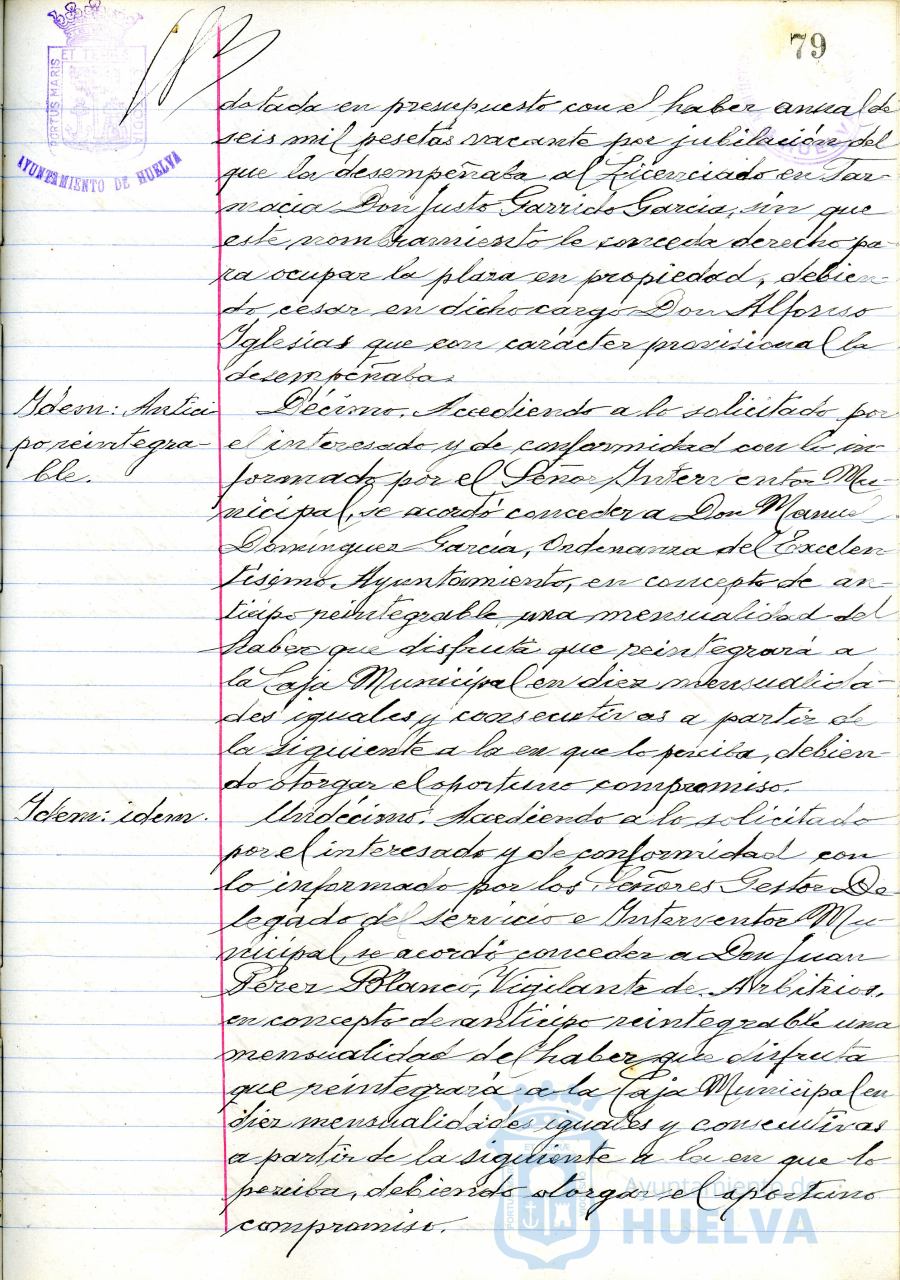 79
PORTUS MARIS ET TERRÆ CUSTODIA
AYUNTAMIENTO DE HUELVA
dotada en presupuesto con el haber anual de
seis mil pesetas vacante por jubilación del
que la desempeñaba al Licenciado en Far-
macia Don Justo Garrido García, sin que
este nombramiento le conceda derecho pa-
ra ocupar la plaza en propiedad, debien-
do cesar en dicho cargo Don Alfonso
Iglesias que con carácter provisional la
desempeñaba.
Idem: Antici
po reintegra-
ble.
Décimo. Accediendo a lo solicitado por
el interesado y de conformidad con lo in
formado por el Señor Interventor Mu-
nicipal, se acordó conceder a Don Manuel
Domínguez García, Ordenanza del Excelen-
tísimo Ayuntamiento, en concepto de an-
ticipo reintegrable una mensualidad del
haber que disfruta que reintegrará a
la Caja Municipal en diez mensualida-
des iguales y consecutivas a partir de
la siguiente a la en que lo perciba, debien-
do otorgar el oportuno compromiso.
Idem: idem.
Undécimo. Accediendo a lo solicitado
por el interesado y de conformidad con
lo informado por los Señores Gestor De-
legado del servicio e Interventor Mu-
nicipal, se acordó conceder a Don Juan
Pérez Blanco, Vigilante de Arbitrios,
en concepto de anticipo reintegrable una
mensualidad del haber que disfruta
que reintegrará a la Caja Municipal en
diez mensualidades iguales y consecutivas
a partir de la siguiente a la en que lo
perciba, debiendo otorgar el oportuno
compromiso.
Ayuntamiento de
HUELVA